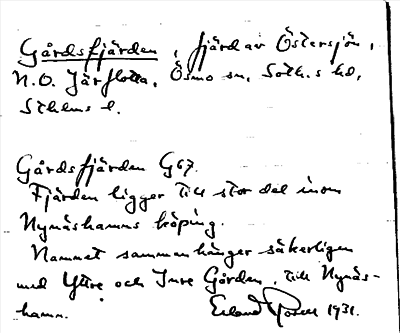 Gårdsfjärden, fjärd av Östersjön,
N.O. Järflotta, Ösmo sn, Soth.s hd,
Sthlms l.
Gårdsfjärden G67.
Fjärden ligger till stor del inom
Nynäshamns köping.
Namnet sammanhänger säkerligen
med Yttre och Inre Gården, till Nynäs-
hamn. Erland Rosell 1931.